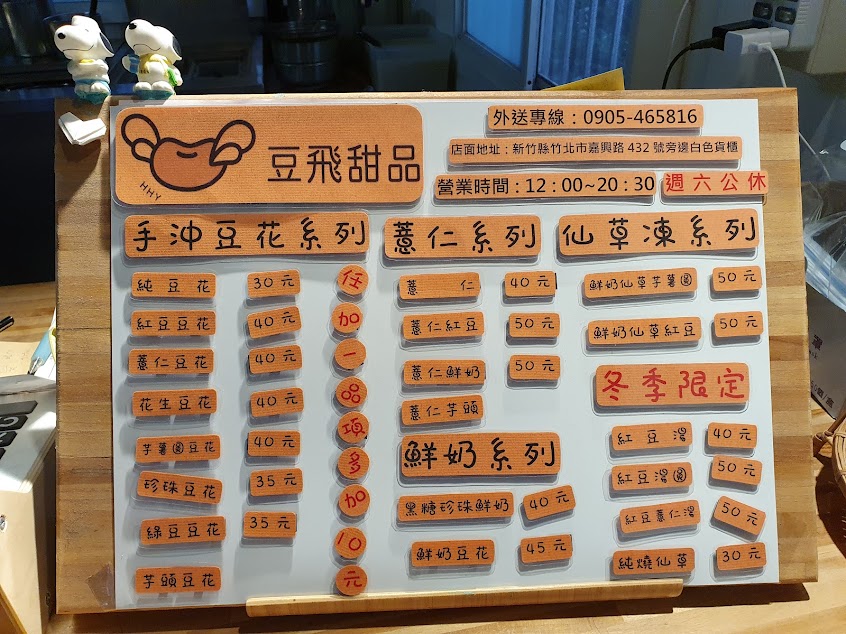 豆飛甜品
HHY
外送專線：0905-465816
店面地址：新竹縣竹北市嘉興路 432 號旁邊白色貨櫃
營業時間：12：00~20：30 週六公休
手沖豆花系列
純豆花 30元
紅豆豆花 40元
薏仁豆花 40元
花生豆花 40元
芋薯圓豆花 40元
珍珠豆花 35元
綠豆豆花 35元
芋頭豆花
任加一品項多加10元
薏仁系列
薏仁 40元
薏仁紅豆 50元
薏仁鮮奶 50元
薏仁芋頭
鮮奶系列
黑糖珍珠鮮奶 40元
鮮奶豆花 45元
仙草凍系列
鮮奶仙草芋薯圓 50元
鮮奶仙草紅豆 50元
冬季限定
紅豆湯 40元
紅豆湯圓 50元
紅豆薏仁湯 50元
純燒仙草 30元